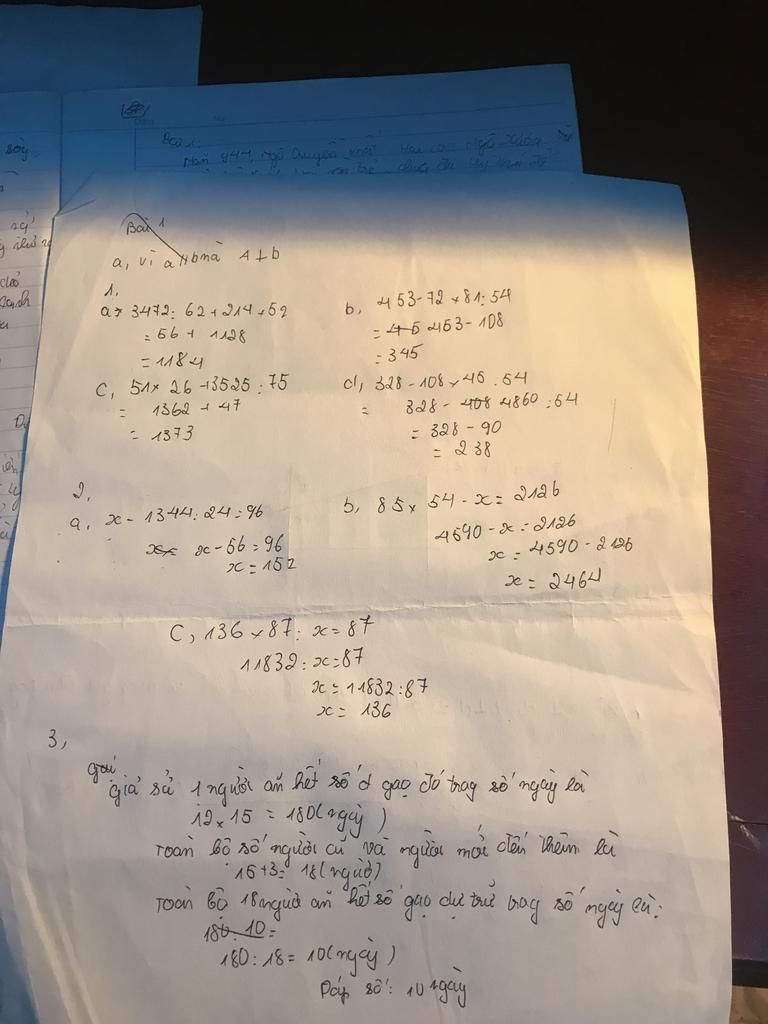 Bài 1
a, vì a // b mà A ⊥ b
1.
a, 3472 : 62 + 214 + 52
= 56 + 1128
= 1184
b, 453 - 72 × 81 : 54
= 45 453 - 108
= 345
c, 51 × 26 + 3525 : 75
= 1362 + 47
= 1373
d, 328 - 108 × 45 : 54
= 328 - 408 4860 : 54
= 328 - 90
= 238
2,
a, x - 1344 : 24 = 96
x - 56 = 96
x = 152
b, 85 × 54 - x = 2126
4590 - x = 2126
x = 4590 - 2126
x = 2464
C, 136 × 87 : x = 87
11832 : x = 87
x = 11832 : 87
x = 136
3,
giả sử 1 người ăn hết số gạo đó trag số ngày là
12 × 15 = 180 (ngày)
Toàn bộ số người cũ và người mới đến thêm là
15 + 3 = 18 (người)
Toàn bộ 18 người ăn hết số gạo dự trữ trag số ngày là:
180 : 10 =
180 : 18 = 10 (ngày)
Đáp số: 10 ngày